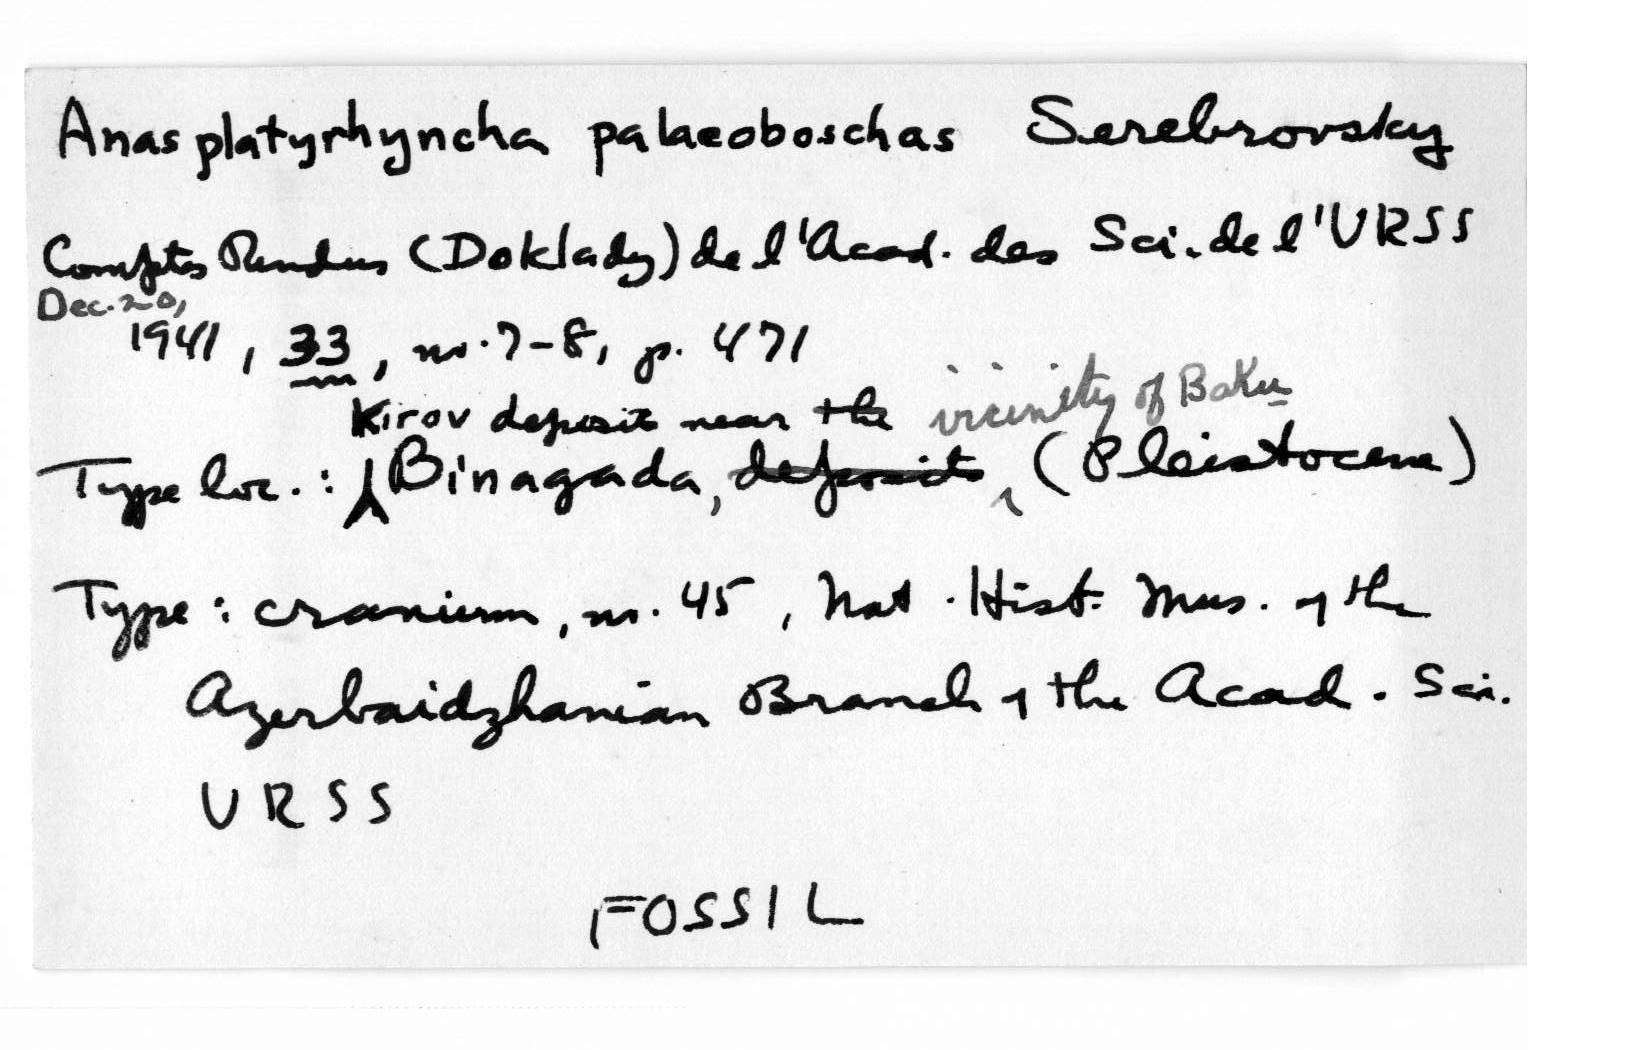 Anas platyrhyncha palaeoboschas Serebrovsky
Comptes Rendus (Doklady) de l'Acad. des Sci. de l'URSS
Dec. 20,
1941, 33, no. 7-8, p. 471
Kirov deposit near the vicinity of Baku
Type loc.: Binagada, deposit, (Pleistocene)
Type: cranium, no. 45, Nat. Hist. Mus. of the
Azerbaidzhanian Branch of the Acad. Sci.
URSS
FOSSIL